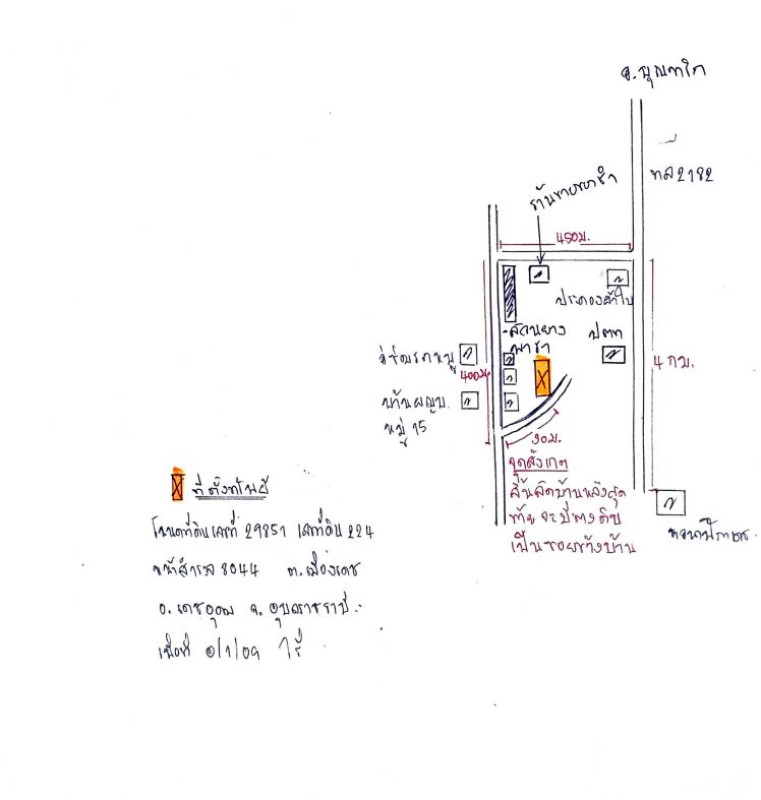 อ.บุณฑริก
ทล 2182
ร้านขายของชำ
450ม.
ประคองผ้าใบ
สวนยาง
พารา
ปตท
อู่ซ่อมรถหมู
400ม
4 กม.
บ้านผญบ.
หมู่ 15
90ม.
จุดสังเกต
สิ้นสุดบ้านหลังสุด
ท้าย จะมีทางดิน
เป็นซอยข้างบ้าน
X ที่ตั้งทรัพย์
โฉนดที่ดินเลขที่ 29851 เลขที่ดิน 224
หน้าสำรวจ 8044 ต.เมืองเดช
อ.เดชอุดม จ.อุบลราชธานี
เนื้อที่ 0/1/09 ไร่